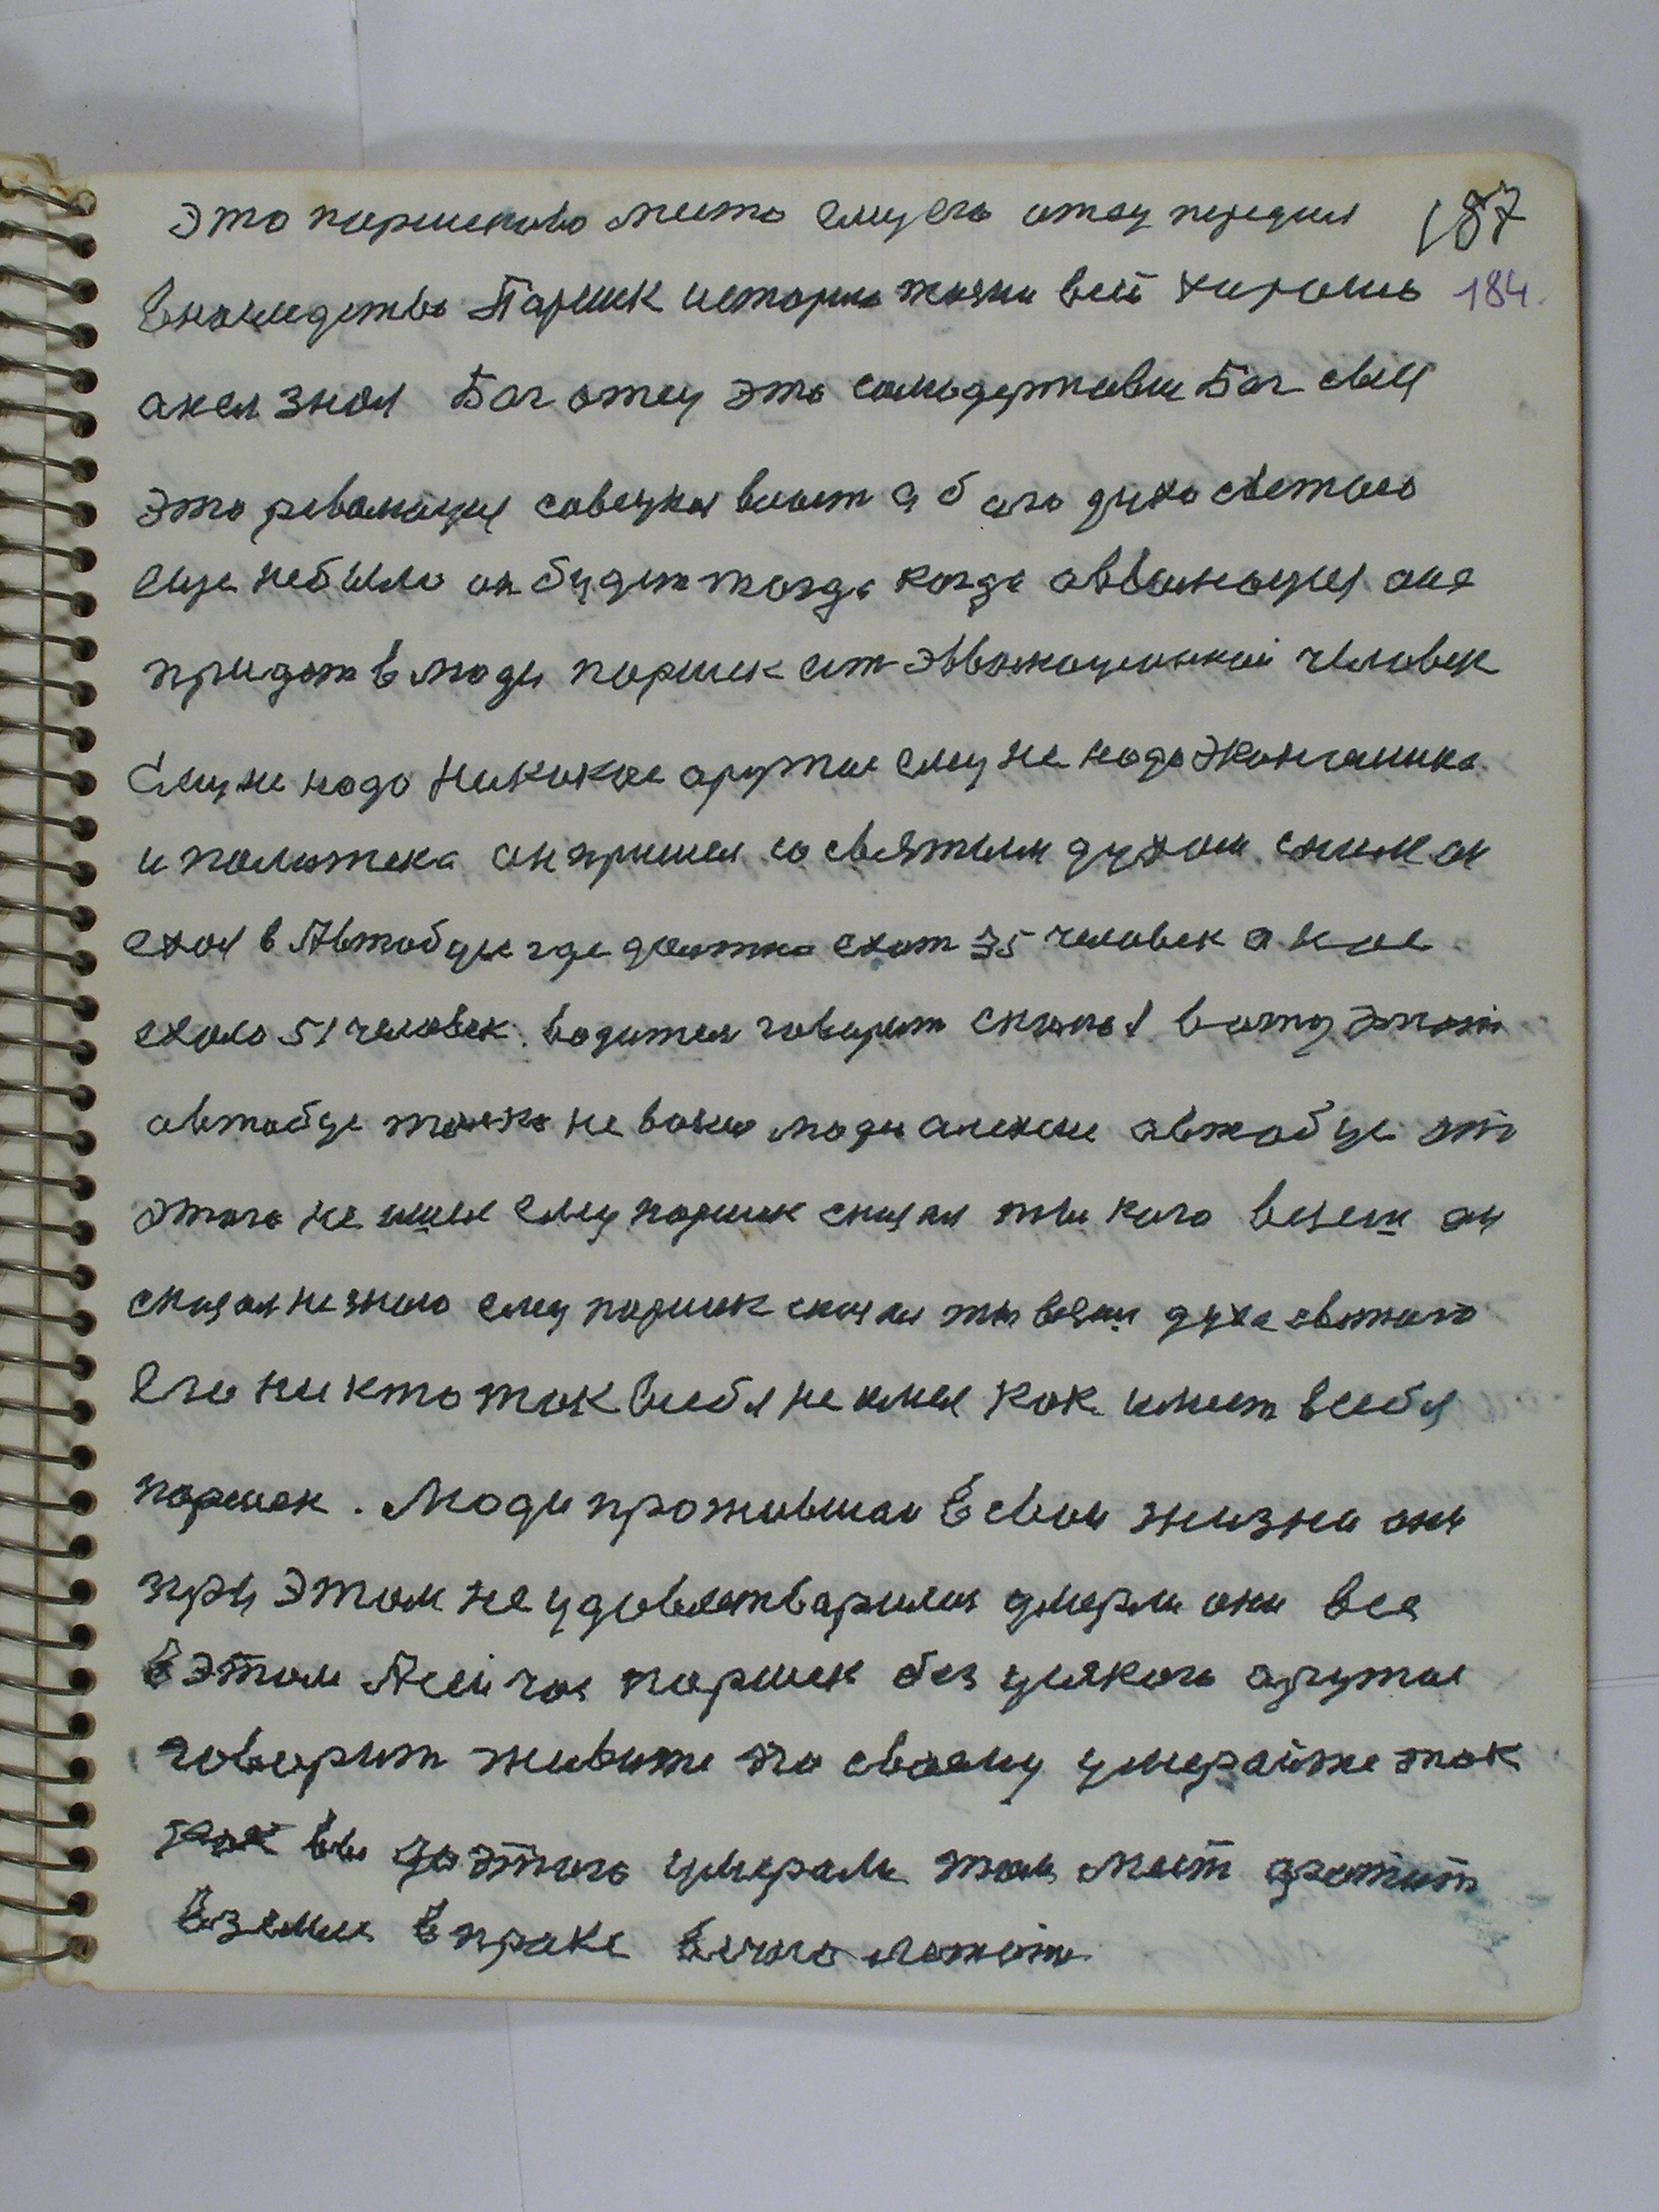 Это паршеково место ему его отец передал 187
Внаследство Паршек история жизни всей хирошо 184
Бог отец это самодержавие Бог сын
это револющия совецкая власт а б ого духо светого
еще небыло он будет тогда когда она
придет в люди паршек ет человек
Ему не надо никокое аружие ему не надо
и политека он пришел со святым духом сним он
ехол в Автобусе где должно ехат 35 человек а нас
ехоло 51 человек. водител говорит этот
автобус люди автобус это
этого не имел ему паршек сказал ты кого везеш он
сказал не знаю ему паршек сказал ты везеш духа святого
Его никто ток всебя не имел как имеет всебя
паршек. Люди прожившаи в свои жизни они
при этом не удовлетварилис умерли они все
в этом А сейчас паршек без усякого аружие
говорит живите по своему умерайте ток
как вы до этого умерали
в земле в прахе лежат.